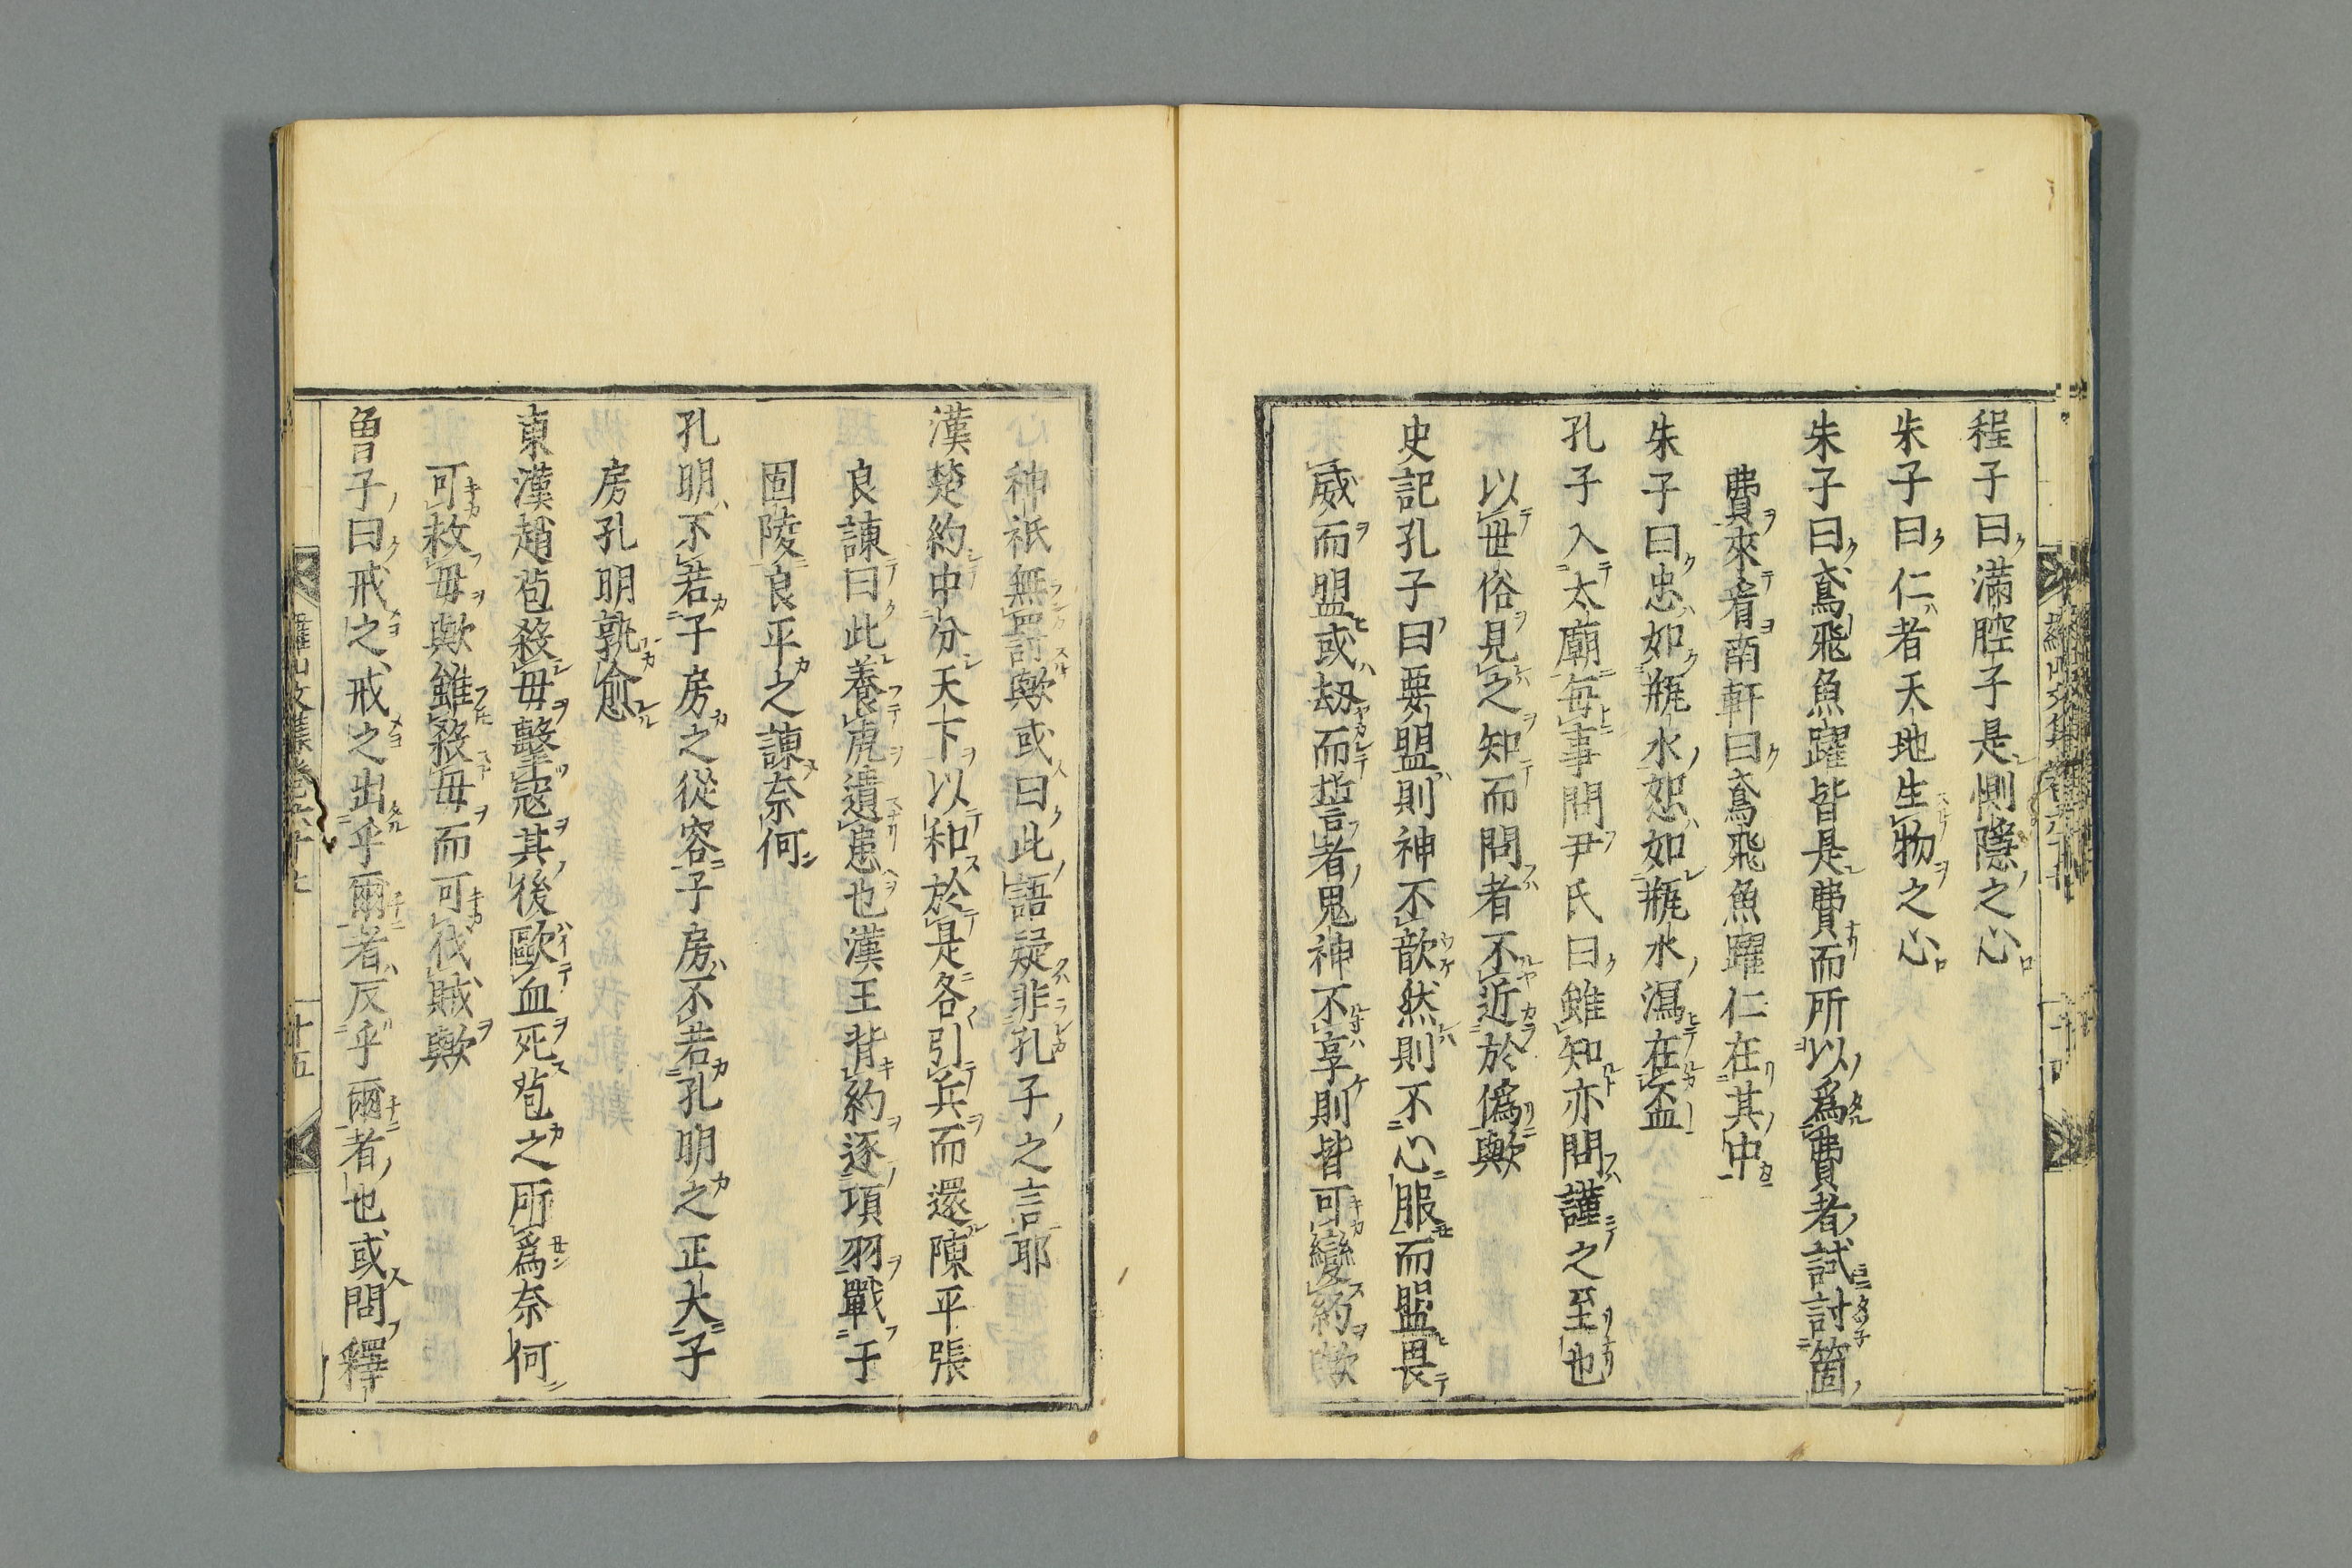 程子曰滿腔子是惻隱之心
朱子曰仁者天地生物之心
朱子曰鳶飛魚躍皆是費而所以爲費者試討箇
費來看南軒曰鳶飛魚躍仁在其中
朱子曰忠如瓶水恕如瓶水瀉在盃
孔子入太廟每事問尹氏曰雖知亦問謹之至也
以世俗見之知而問者不近於僞歟
史記孔子曰要盟則神不歆然則不心服而盟畏
威而盟或劫而誓者鬼神不享則皆可變約歟
神祇無罰歟或曰此語疑非孔子之言耶
漢楚約中分天下以和於是各引兵而還陳平張
良諫曰此養虎遺患也漢王背約逐項羽戰于
固陵良平之諫奈何
孔明不若子房之從容子房不若孔明之正大子
房孔明孰愈
東漢趙苞殺毋擊寇其後歐血死苞之所爲奈何
可救毋歟雖殺毋而可伐賊歟
曾子曰戒之戒之出乎爾者反乎爾者也或問釋
羅山文集卷六十七
十五